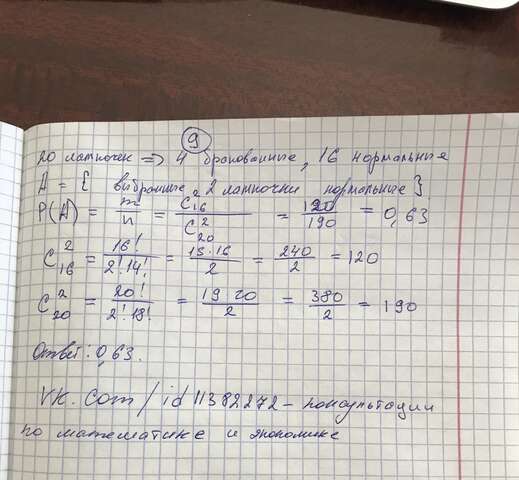 9
20 лампочек => 4 бракованные, 16 нормальные
A = { выбранные 2 лампочки нормальные }
P(A) = m/n = C₁₆²/C₂₀² = 120/190 = 0,63
C₁₆² = 16!/2!14! = 15·16/2 = 240/2 = 120
C₂₀² = 20!/2!18! = 19·20/2 = 380/2 = 190
Ответ: 0,63.
VK.com/id11382272 – консультации
по математике и экономике